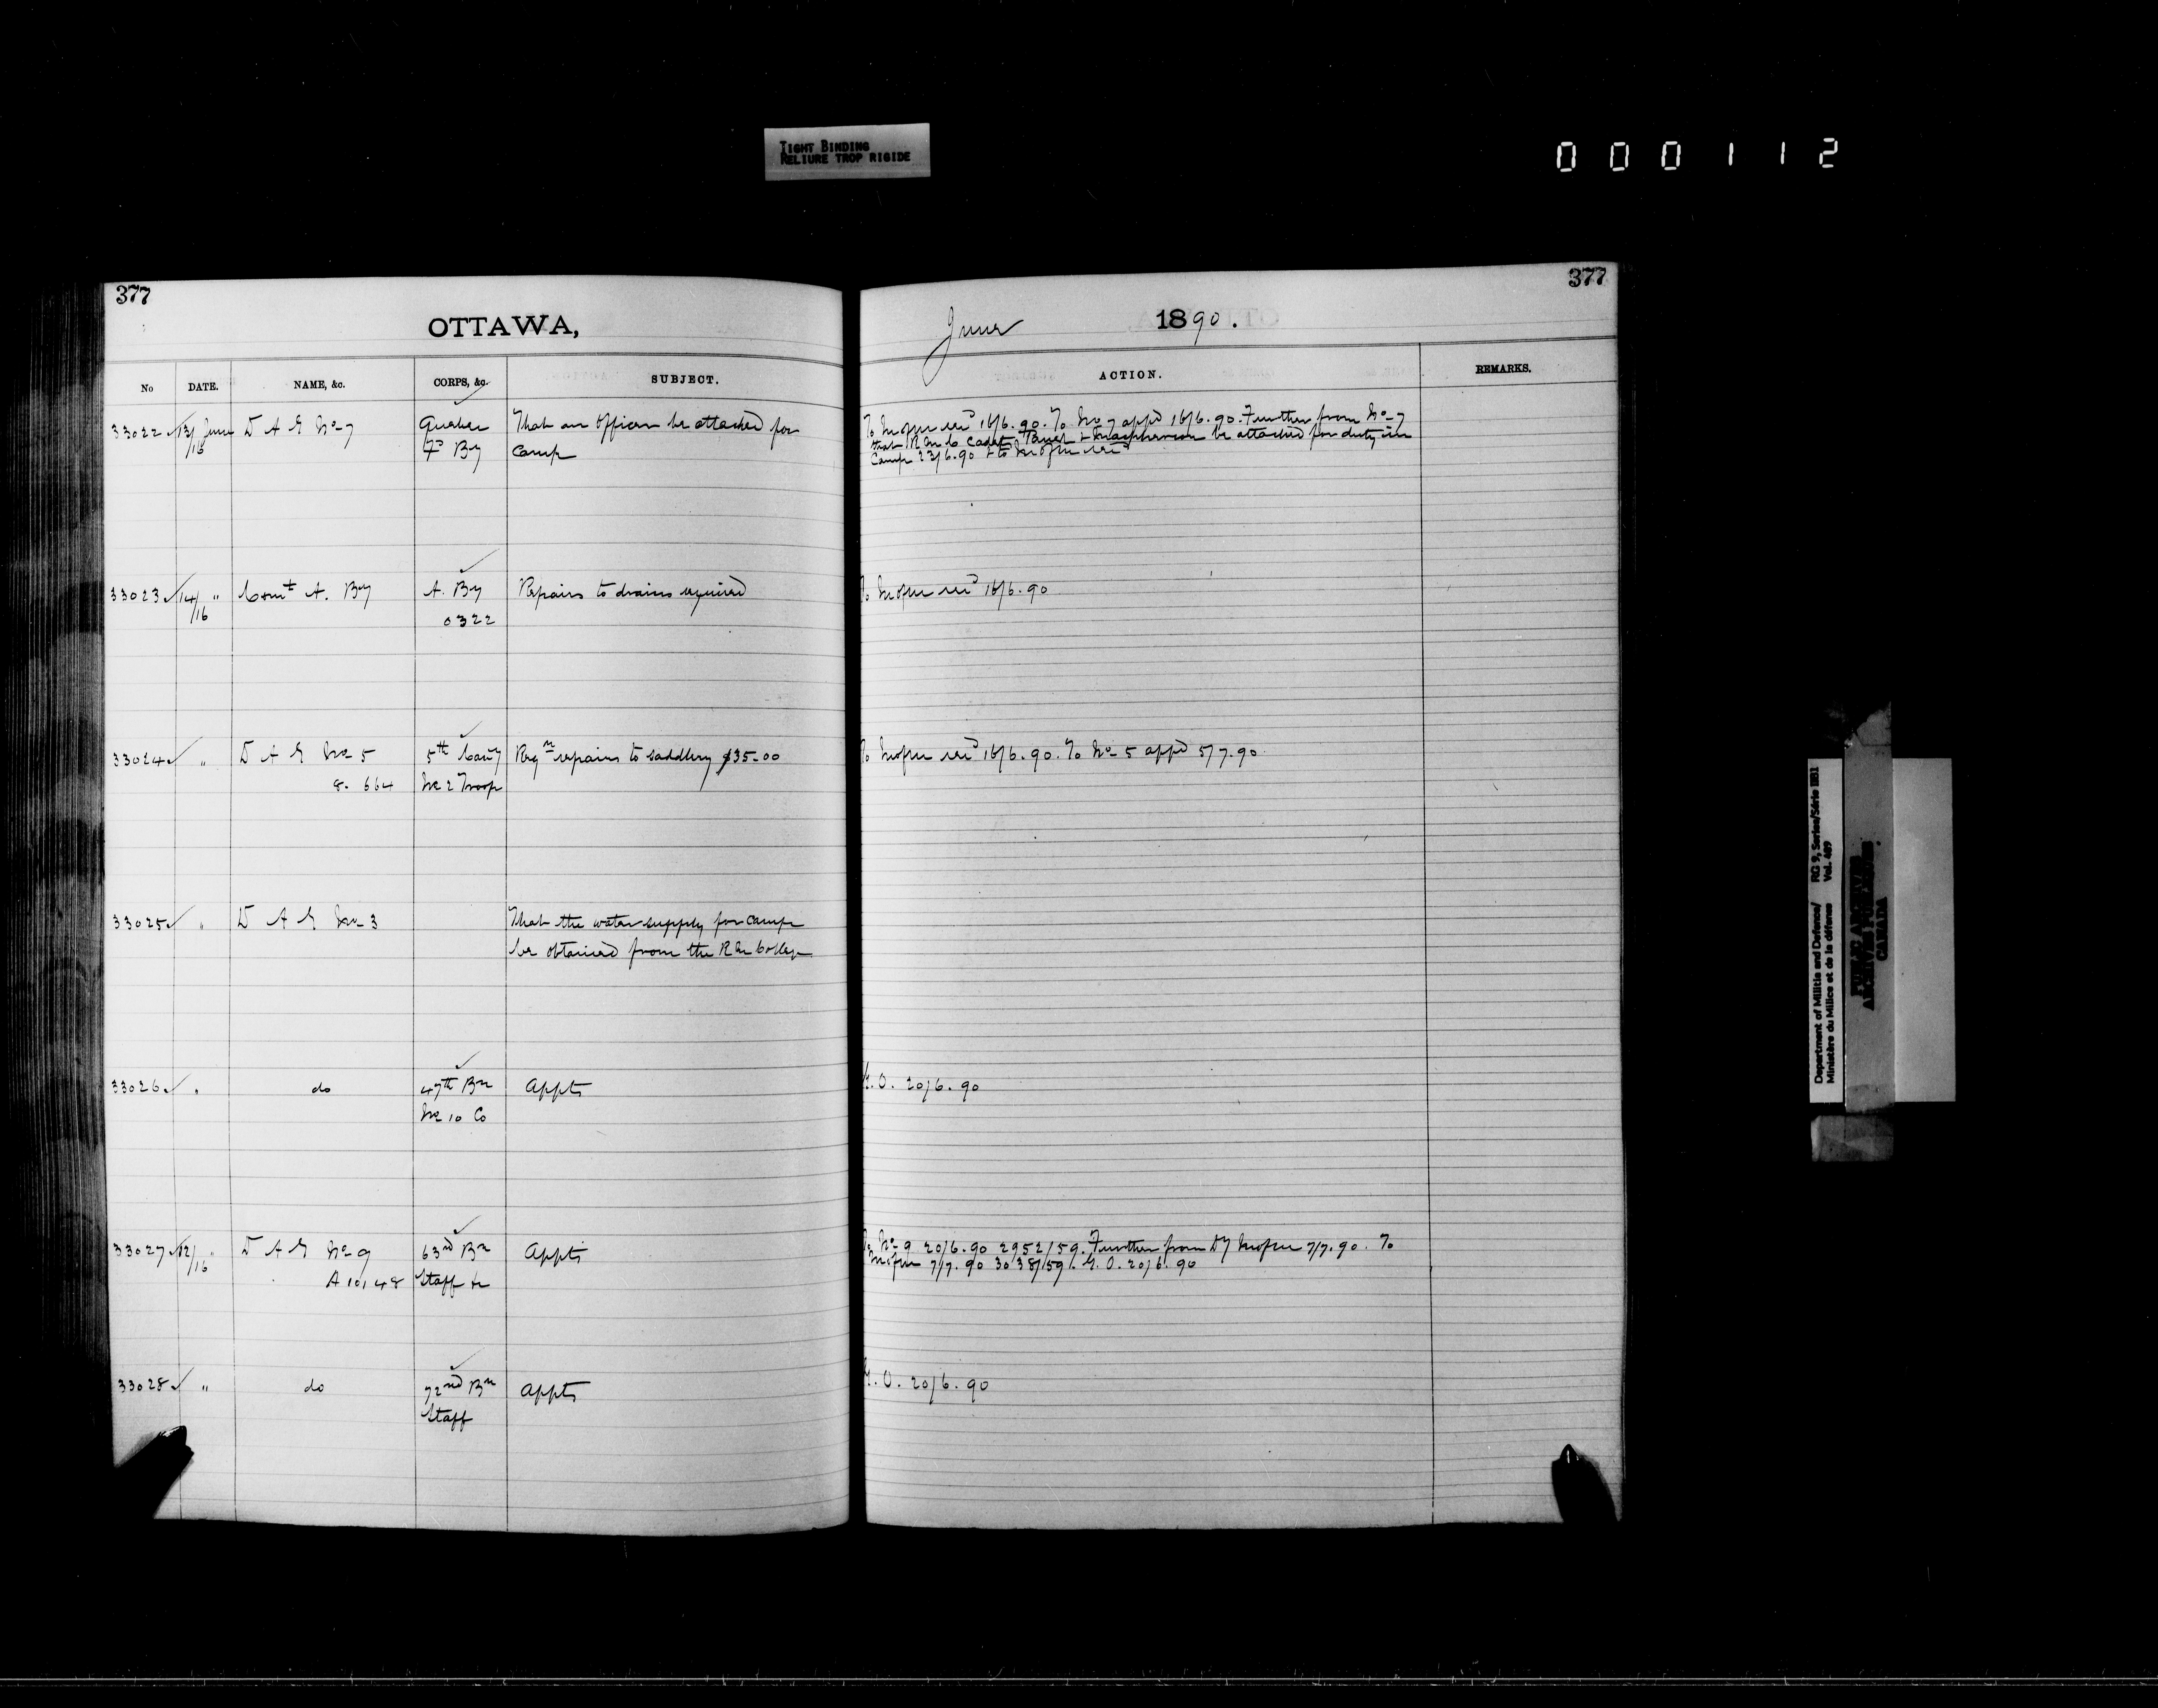 TIGHT BINDING
RELIURE TROP RIGIDE
000112
377
OTTAWA,
No DATE. NAME, &c. CORPS, &c. SUBJECT.
33022 13/16 June D A G No 7 Quebec That an Officer be attached for
Fd By Camp
33023 14/16 " Comt A. By A. By Repairs to drains required
0322
33024 " D A G No 5 5th Cavy Reqn repairs to saddlery $35.00
8. 664 No 2 Troop
33025 " D A G No 3 That the water supply for camp
be obtained from the R M College
33026 " do 47th Bn Appts
No 10 Co
33027 12/16 " D A G No 9 63rd Bn Appts
A 10148 Staff &c
33028 " do 72nd Bn Appts
Staff
377
June 1890.
ACTION. REMARKS.
To 16/6.90. To No 7 appd 16/6.90. Further from No 7
that R M C Cadets & be attached for duty in
Camp 23/6.90 & to
To 16/6.90
To 16/6.90. To No 5 appd 5/7.90
G.O. 20/6.90
To No 9 20/6.90 2952/59. Further from 7/7.90. To
7/7.90 3038/59. G.O. 20/6.90
G.O. 20/6.90
Department of Militia and Defence/ RG 9, Series/Série IIB1
Ministère du Milice et de la défense Vol. 489
PUBLIC ARCHIVES
ARCHIVES PUBLIQUES
CANADA